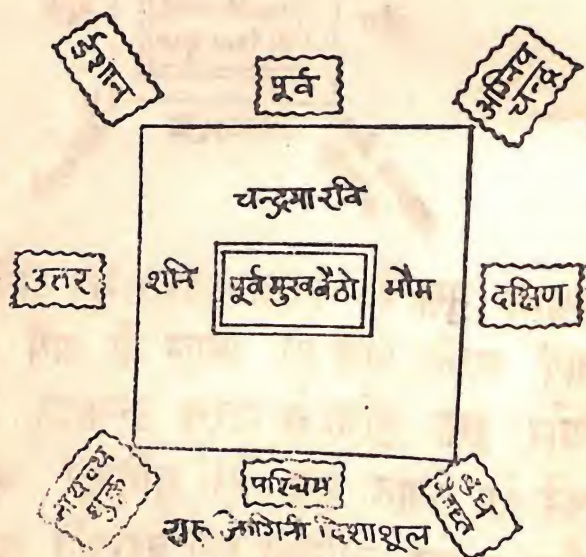 ईशान
पूर्व
अग्निय
चन्द्र
चन्द्रमा रवि
उत्तर
शनि
पूर्व मुख बैठो
भौम
दक्षिण
वायव्य
शुक्र
पश्चिम
बुध
नैऋत
गुरू जोगिनी दिशाशूल